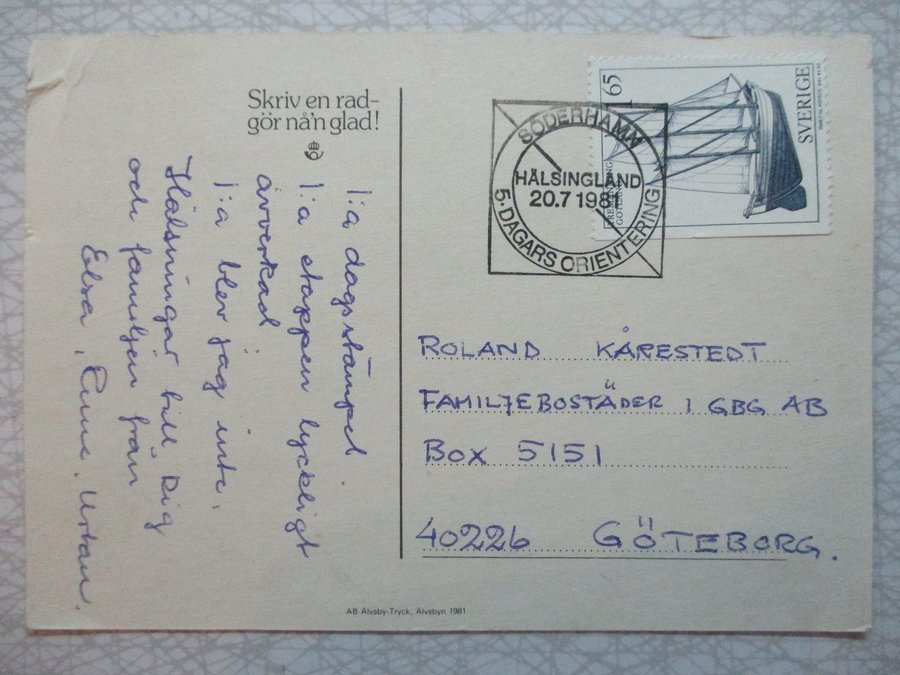 Skriv en rad-
gör nå'n glad!
1:a dagsstämpel.
1:a etappen lyckligt
avverkad.
1:a blev jag inte.
Hälsningar till Dig
och familjen från
Elsa, Rune, Urban.
SÖDERHAMN
HÄLSINGLAND
20.7 1981
5-DAGARS ORIENTERING
1.65
SVERIGE
ROLAND KÅRESTEDT
FAMILJEBOSTÄDER I GBG AB
BOX 5151
40226 GÖTEBORG.
AB Älvsby-Tryck, Älvsbyn 1981